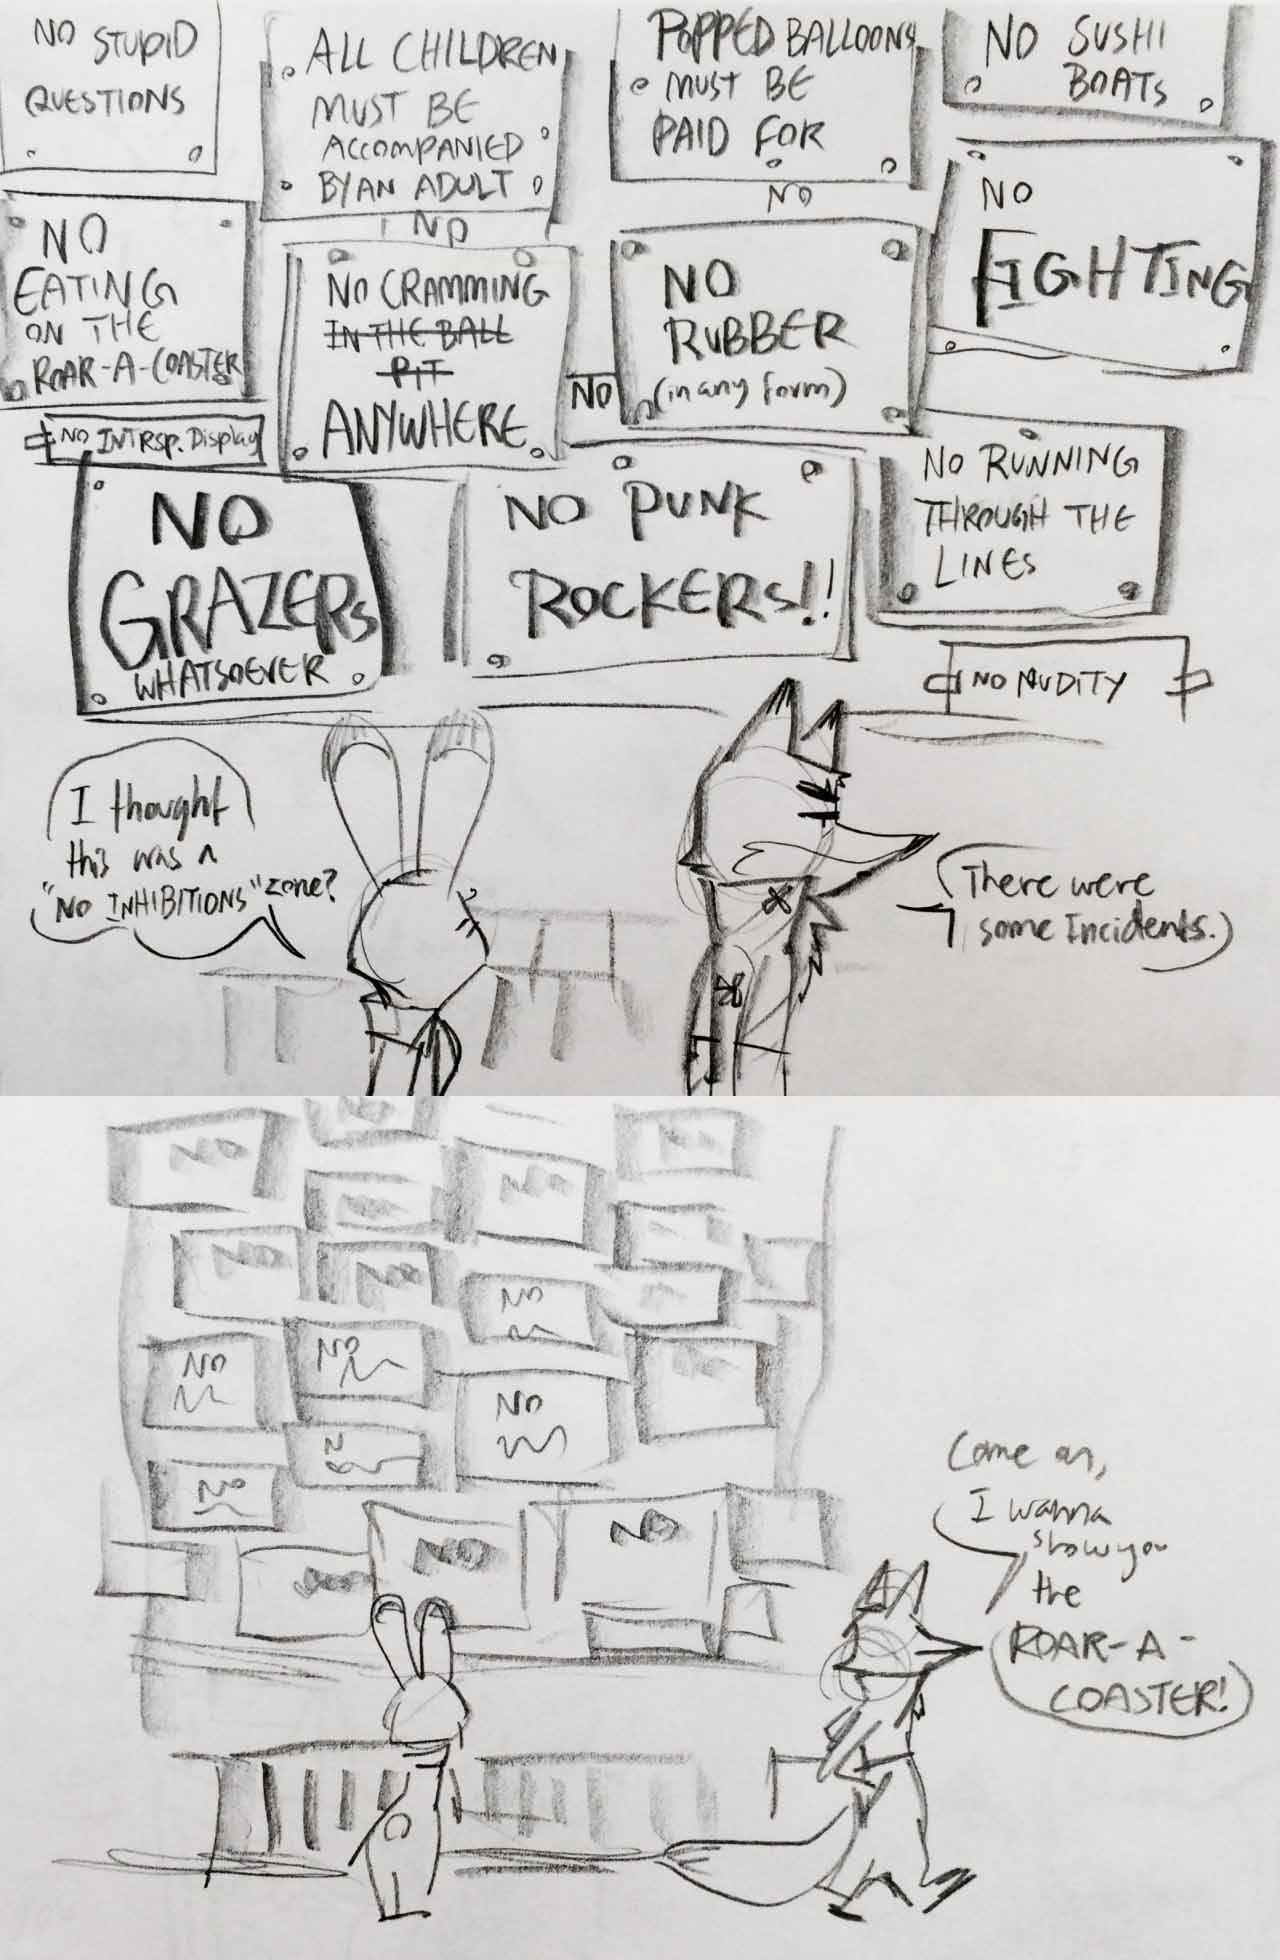 NO STUPID
QUESTIONS
ALL CHILDREN
MUST BE
ACCOMPANIED
BY AN ADULT
POPPED BALLOONS
MUST BE
PAID FOR
NO SUSHI
BOATS
NO
EATING
ON THE
ROAR-A-COASTER
NO
NO CRAMMING
IN THE BALL
PIT
ANYWHERE
NO
NO
RUBBER
(in any form)
NO
NO
FIGHTING
NO INTRSP. Display
NO
GRAZERS
WHATSOEVER
NO PUNK
ROCKERS!!
NO RUNNING
THROUGH THE
LINES
NO NUDITY
I thought
this was a
"NO INHIBITIONS" zone?
There were
some Incidents.
NO
NO
NO
NO
NO
NO
NO
NO
NO
NO
NO
Come on,
I wanna
show you
the
ROAR-A-
COASTER!